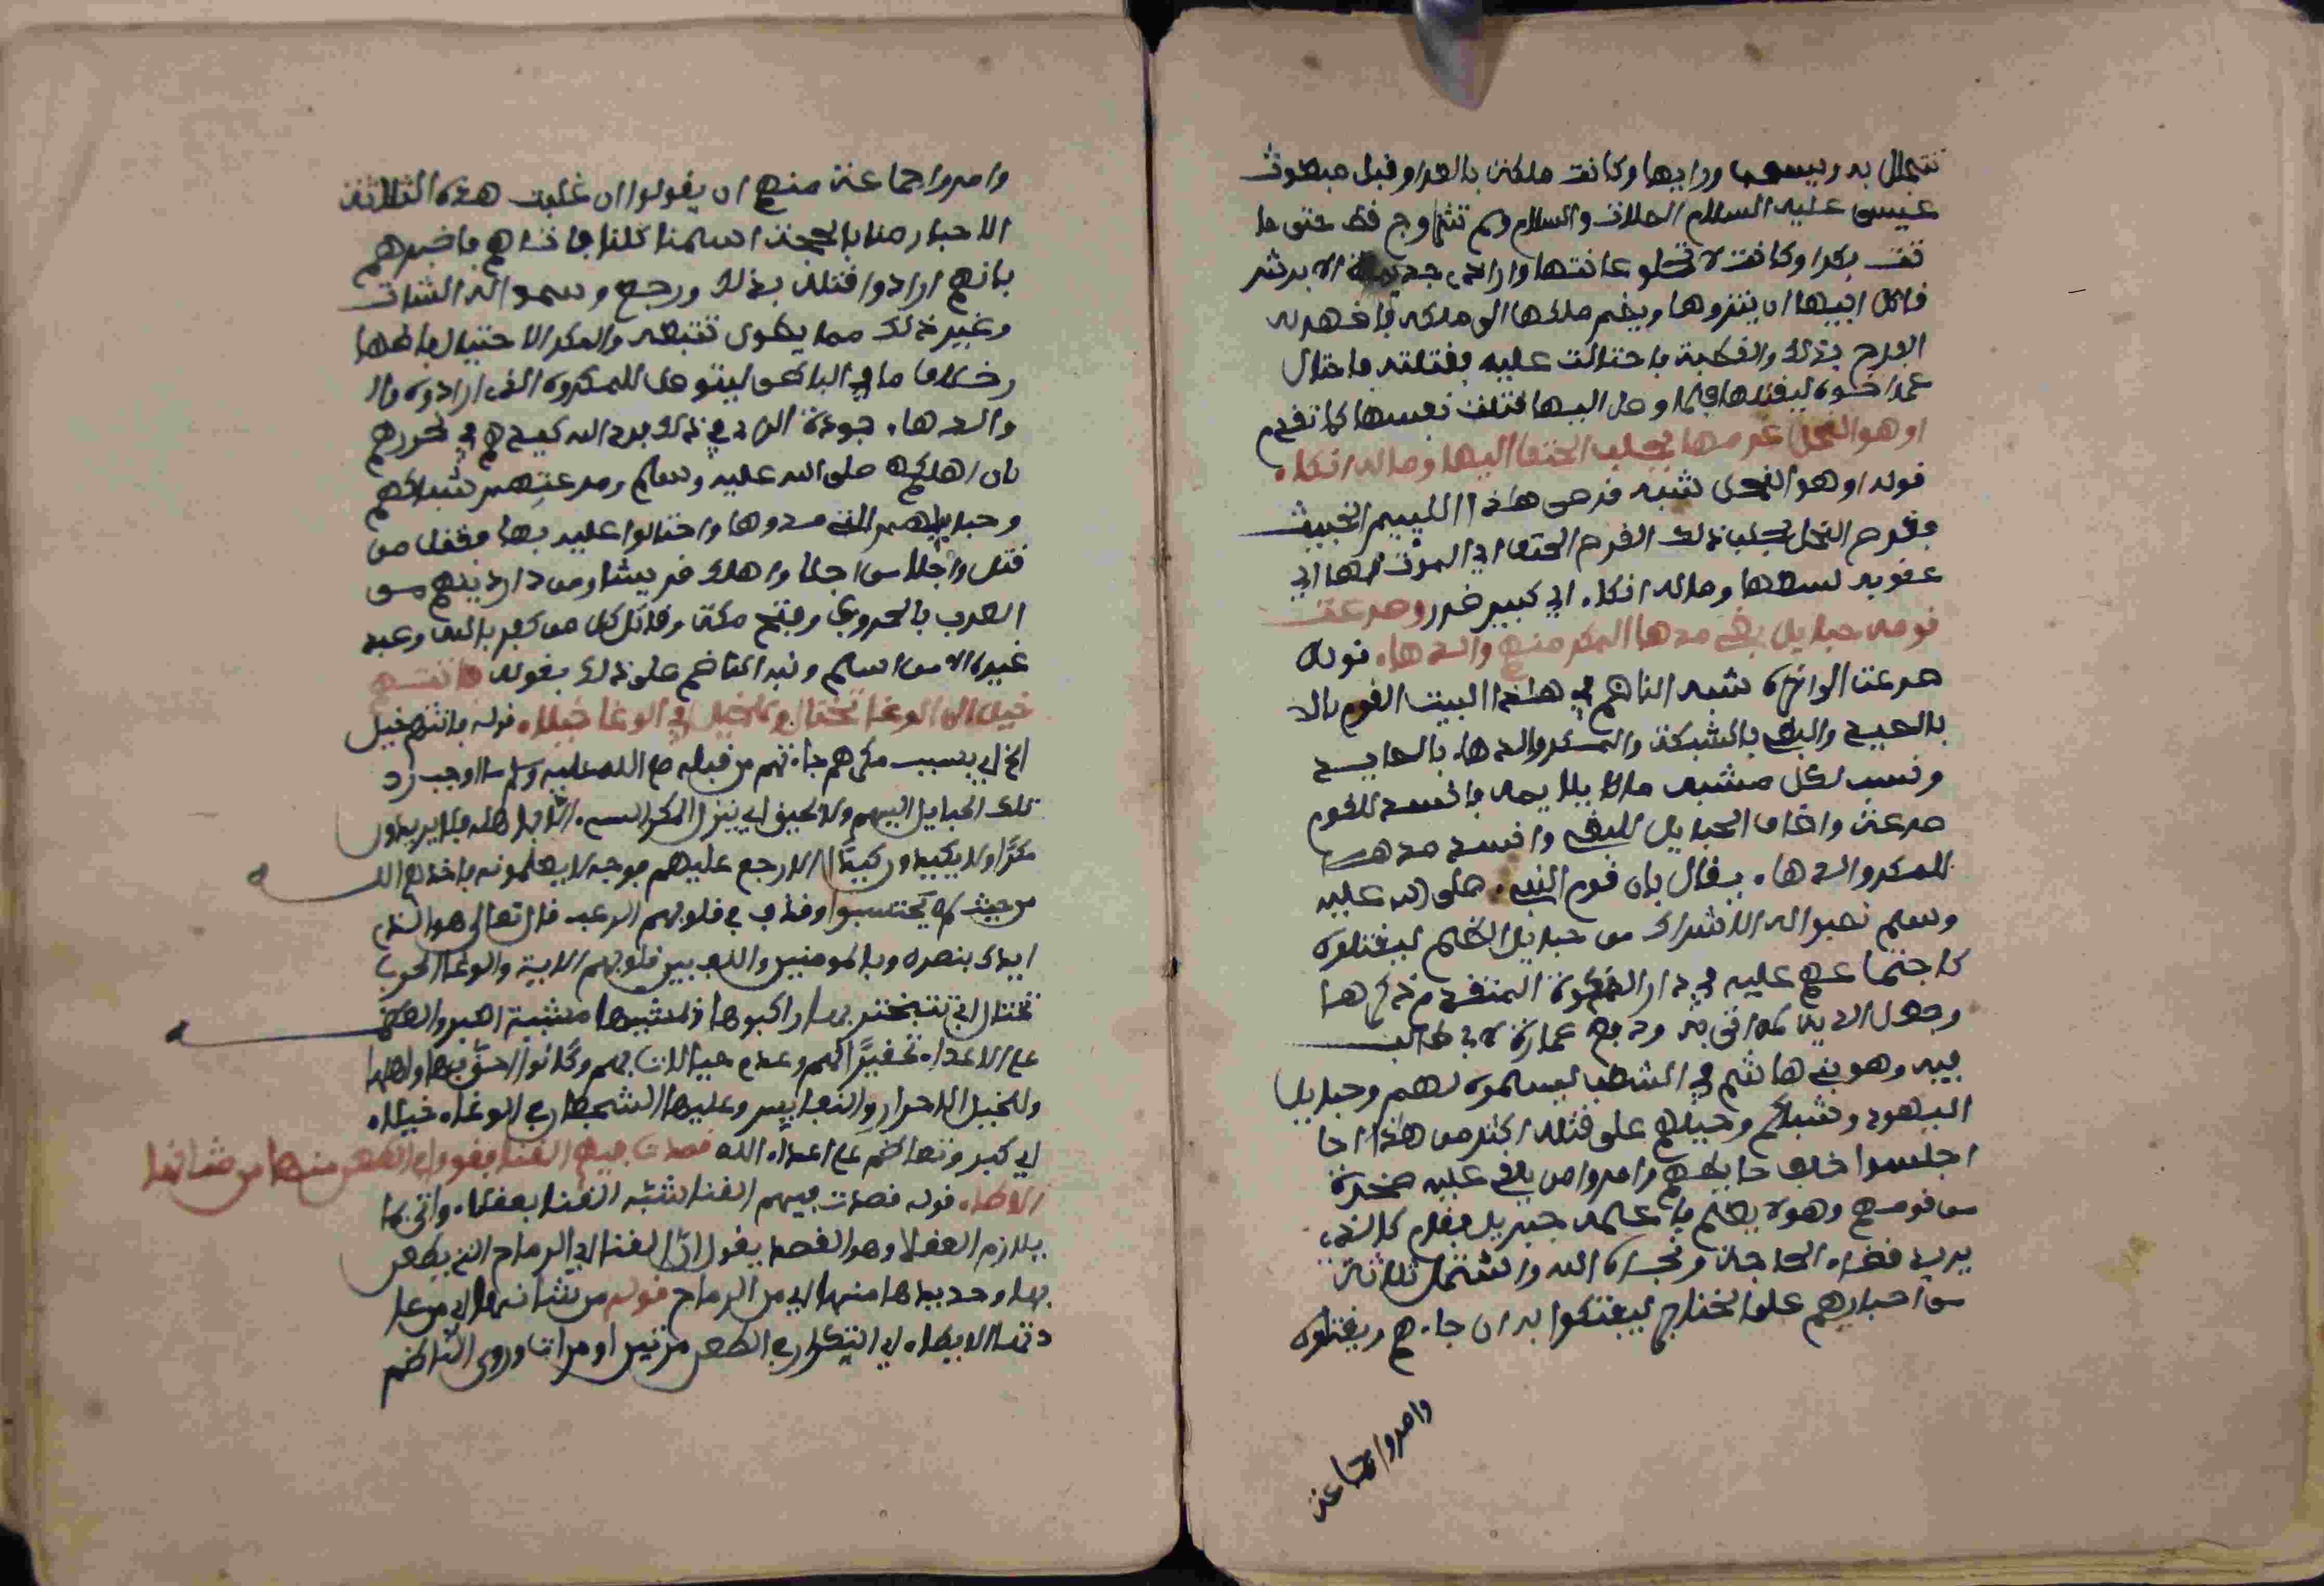 تتجمل به وبيسمها ورابها وكانت ملكت بالعراق قبل مبعوث
عيسى عليه السلام الصلاة والسلام ولم تتزاوج قط حتى ما
تت بكرا وكانت لا تحلو عانتها واراد جذيمة الابرش
قاتل ابيها ان يتزوجها ويضم ملكها الى ملكه فاظهر له
الفرح بذلك والخطبة فاحتالت عليه فقتلته فاحتال
عمرا خوه ليقتلها فلما وصل اليها قتلت نفسها كما تقدم
او هو النحل قرصها يجلب الحتف اليها وماله انكاء
قوله او هو النحل شبه قرص هاذا اللييم الخبيث
بقرص النحل يجلب ذلك القرص الحتف اي الموت لها اي
عقوبه لسعها وماله انكاء اي كبير ضرر وصرعت
قومه حبايل بغي مدها المكر منهم والدهاء قوله
صرعت الواخره شبه الناظم في هاذا البيت القوم بالـ
بالصيد والبغي بالشبكة والمكر والدهاء بالصايد
ونسب لكل مشبه ما لا يلايمه فانسد للقوم
صرعت واضاف الحبايل للبغي واسند مدها
للمكر والدهاء يقال بان قوم النبي صلى الله عليه
وسلم نصبوا له الاشراك من حبايل الظلم ليقتلوه
كاجتماعهم عليه في دار الندوة المتقدم ذكرها
وجعل الدية لمن اتى به ودفع عمارة لابي طالب
فيه وهو بني هاشم في الشعب ليسلموه لهم وحبايل
اليهود وشباكهم وحيلهم على قتله اكثر من هذا اذا
اجلسوا خلف حايطهم وامروا من يلقي عليه صخرة
من فوقهم وهو لا يعلم فاعلمه جبريل فقام كالذي
يريد قضاء الحاجة ونجاه الله واشتمل ثلاثة
من احبارهم على الخناجر ليفتكوا به ان جاءهم ويقتلوه
وامروا جماعة
وامروا جماعة منهم ان يقولوا ان غلبت هذه الثلاثة
الاحبار منا بالحجة اسلمنا كلنا فاتاهم فاخبرهم
بانهم ارادوا قتله بذلك ورجع وسموا له الشاة
وغير ذلك مما يطول تتبعه والمكر الاحتيال باظها
رخلاف ما في الباطن ليتوصل للمكروه الذي اراده وال
والدهاء جودة الراي في ذلك فرد الله كيدهم في نحورهم
بان اهلكهم صلى الله عليه وسلم وصرعتهم شباكهم
وحبايلهم التي مدوها واحتالوا عليه بها فقتل من
قتل واجلا من اجلا واهلك قريشا ومن دان دينهم من
العرب بالحروب وفتح مكة وقاتل كل من كفر بالله وعبد
غيره الا من اسلم ونبه الناظم على ذلك بقوله فاتتهم
خيل الى الوغا تختال وللخيل في الوغا خيلاء قوله فاتتهم خيل
الخ اي بسبب مكرهم جاءتهم من قبله صلى الله عليه وسلم ما اوجب رد
تلك الحبايل اليهم ولا يحيق اي ينزل المكر السيء الا باهله فلا يريدون
مكرًا ولا يكيدون كيدًا الا رجع عليهم بوجه لا يعلمونه فاخذهم الله
من حيث لم يحتسبوا وقذف في قلوبهم الرعب قال تعالى هو الذي
ايدك بنصره وبالمومنين والف بين قلوبهم الاية والوغا الحرب
تختال اي تتبختر بها راكبوها ولمشيها مشية الكبر والعظمة
على الاعداء تحقيرًا لهم وعدم مبالات بهم وكانوا احق بها واهلها
وللخيل الاحرار والنفايس وعليها الشجعان في الوغاء خيلاء
اي كبر وتعاظم على اعداء الله قصدت فيهم القنا فقوافي الطعن منها من شانها
الايطاء قوله قصدت فيهم القنا شبه القنا بعقلاء واتى بما
يلازم العقلا وهو القصد يقول ان القنا اي الرماح التي يطعن
بها وحديدها منها اي من الرماح قوله من شانها اي من عا
دتها الايطاء اي التكرار في الطعن مرتين او مرات وروى الناظم